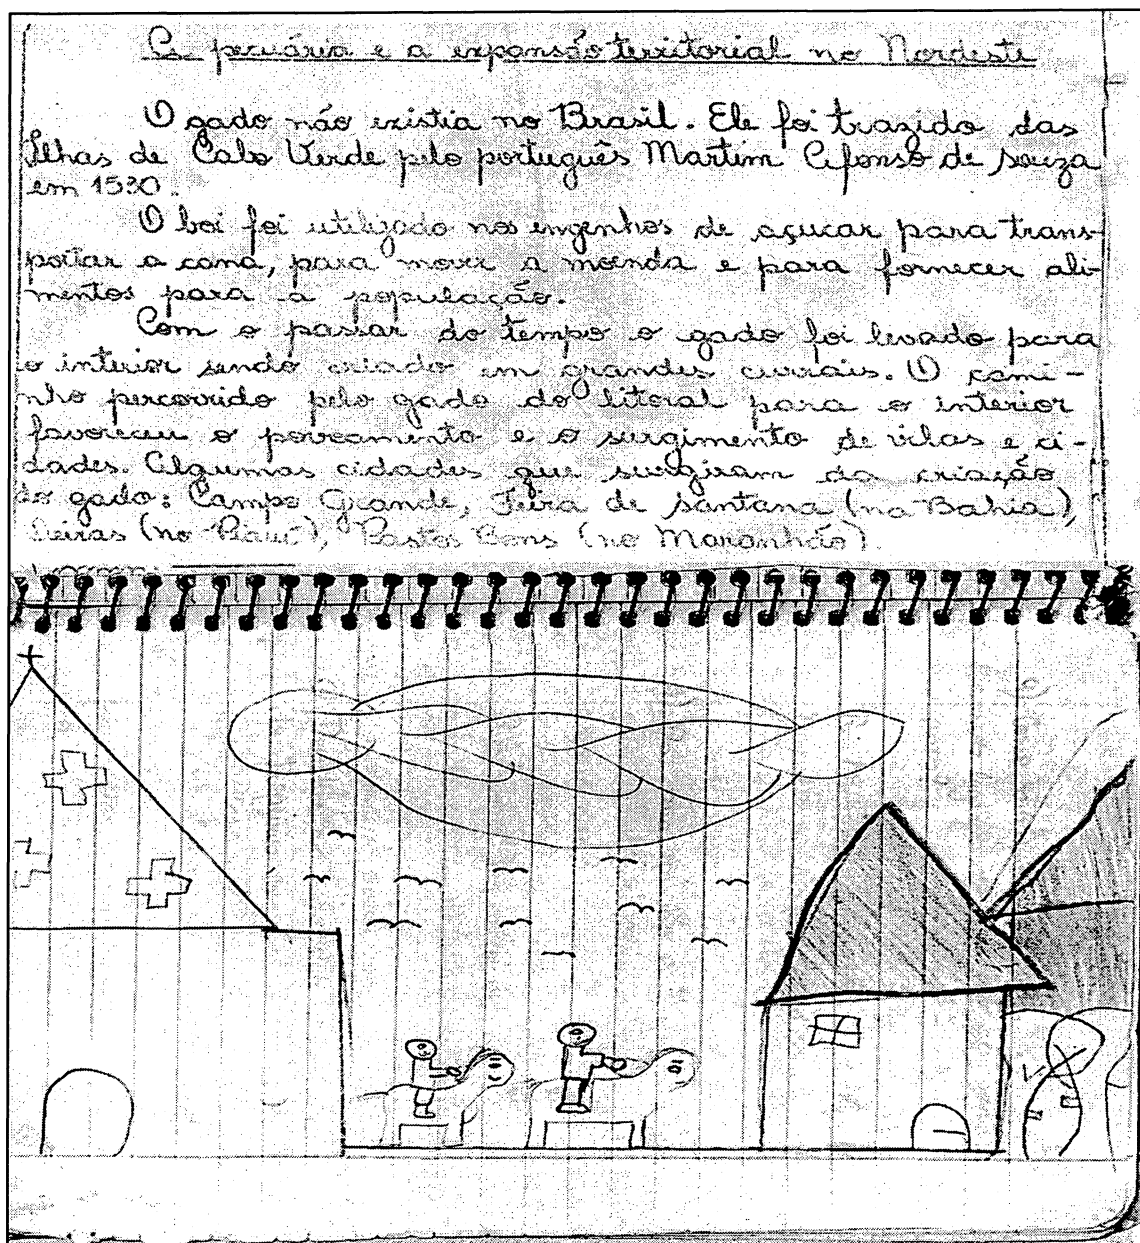 A pecuária e a expansão territorial no Nordeste
O gado não existia no Brasil. Ele foi trazido das
Ilhas de Cabo Verde pelo português Martim Afonso de souza
em 1530.
O boi foi utilizado nos engenhos de açucar para trans-
portar a cana, para mover a moenda e para fornecer ali-
mentos para a população.
Com o passar do tempo o gado foi levado para
o interior sendo criado em grandes currais. O cami-
nho percorrido pelo gado do litoral para o interior
favoreceu o povoamento e o surgimento de vilas e ci-
dades. Algumas cidades que surgiram da criação
do gado: Campo Grande, Feira de santana (na Bahia),
Oeiras (no Piauí), Pastos Bons (no Maranhão).